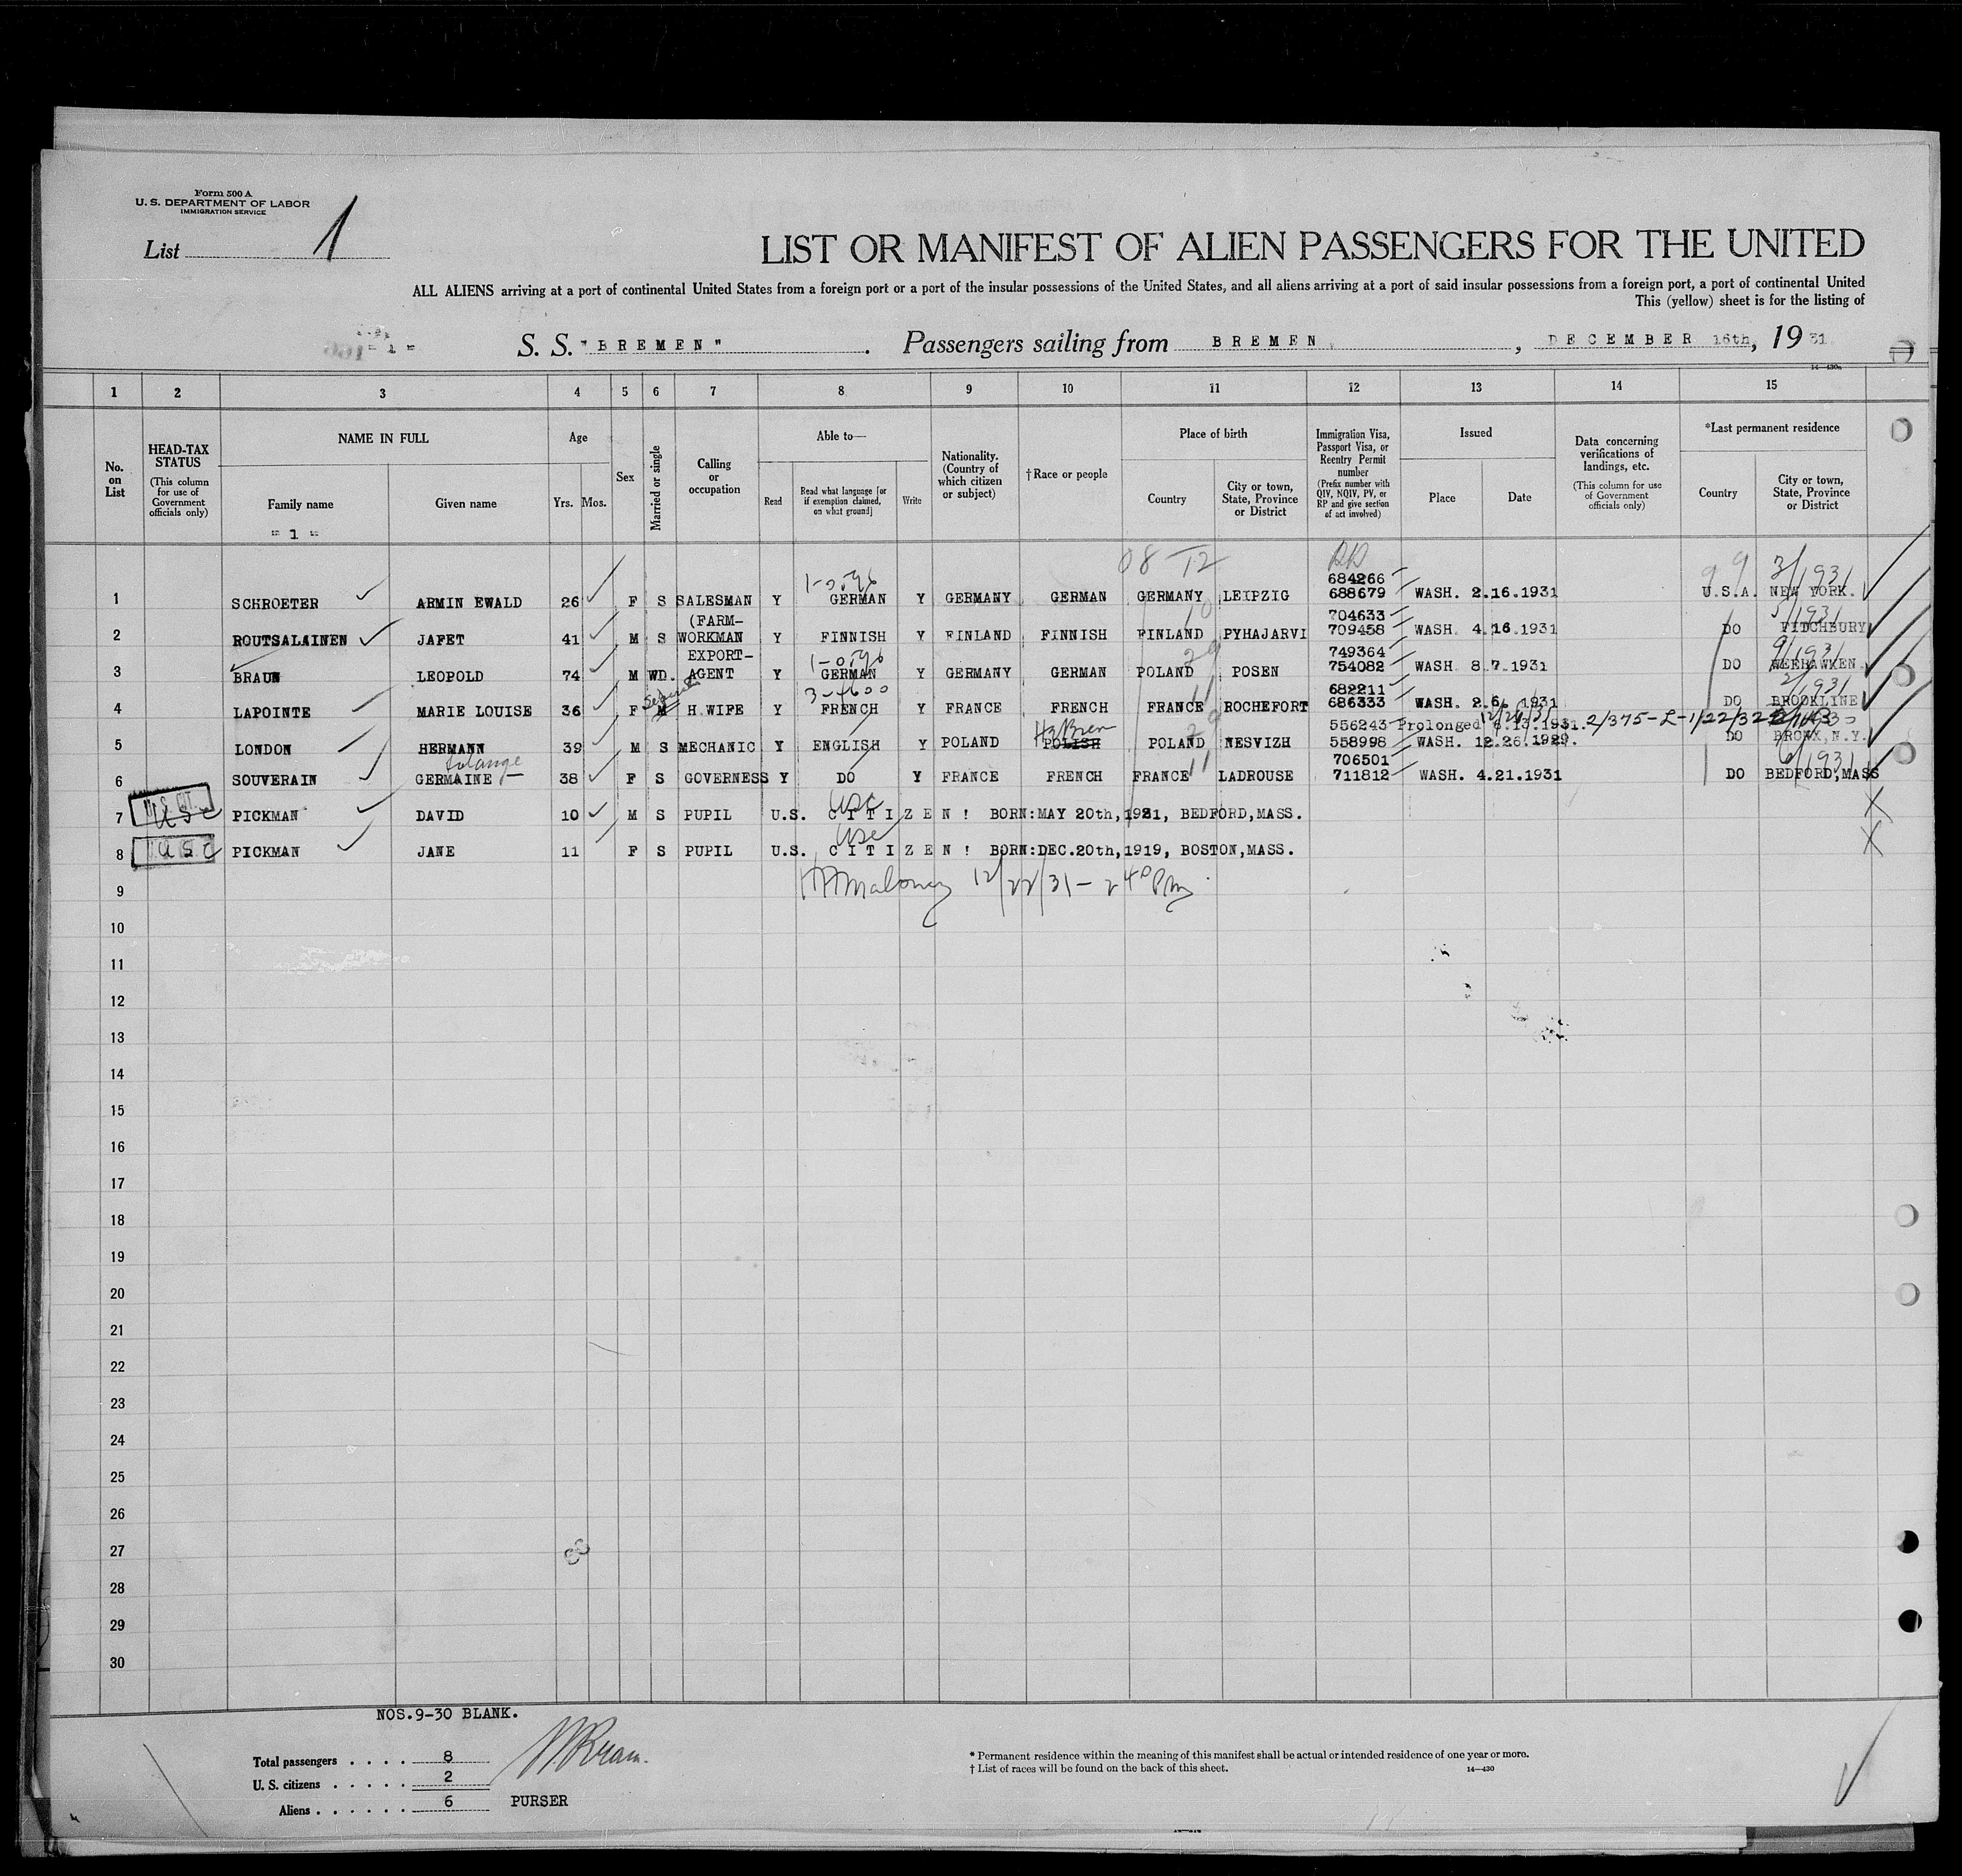 Form 500 A
U. S. DEPARTMENT OF LABOR
IMMIGRATION SERVICE
List 1
LIST OR MANIFEST OF ALIEN PASSENGERS FOR THE UNITED
ALL ALIENS arriving at a port of continental United States from a foreign port or a port of the insular possessions of the United States, and all aliens arriving at a port of said insular possessions from a foreign port, a port of continental United
This (yellow) sheet is for the listing of
- 1 - S. S. "BREMEN" . Passengers sailing from BREMEN, DECEMBER 16th, 1931
14—430a
1 2 3 4 5 6 7 8 9 10 11 12 13 14 15
No. on List
HEAD-TAX STATUS (This column for use of Government officials only)
NAME IN FULL
Family name Given name
- 1 -
Age
Yrs. Mos.
Sex
Married or single
Calling or occupation
Able to—
Read Read what language [or if exemption claimed, on what ground] Write
Nationality. (Country of which citizen or subject)
†Race or people
Place of birth
Country City or town, State, Province or District
Immigration Visa, Passport Visa, or Reentry Permit number (Prefix number with QIV, NQIV, PV, or RP and give section of act involved)
Issued
Place Date
Data concerning verifications of landings, etc. (This column for use of Government officials only)
*Last permanent residence
Country City or town, State, Province or District
08 12
99 3/1931
684266
1 SCHROETER ARMIN EWALD 26 F S SALESMAN Y GERMAN Y GERMANY GERMAN GERMANY LEIPZIG 688679 WASH. 2.16.1931 U.S.A. NEW YORK.
(FARM- 10 704633 5/1931
2 ROUTSALAINEN JAFET 41 M S WORKMAN Y FINNISH Y FINLAND FINNISH FINLAND PYHAJARVI 709458 WASH. 4.16.1931 DO FITCHBURY
EXPORT- 29 749364 9/1931
3 BRAUN LEOPOLD 74 M WD. AGENT Y GERMAN Y GERMANY GERMAN POLAND POSEN 754082 WASH 8.7.1931 DO WEEHAWKEN.
3-4600 11 682211 2/1931
4 LAPOINTE MARIE LOUISE 36 F M H.WIFE Y FRENCH Y FRANCE FRENCH FRANCE ROCHEFORT 686333 WASH. 2.6. 1931 DO BROOKLINE
Hebrew 29 556243 Prolonged 1931. 2/375-L-1/22/32
5 LONDON HERMANN 39 M S MECHANIC Y ENGLISH Y POLAND POLISH POLAND NESVIZH 558998 WASH. 12.26.1929. DO BRONX, N.Y.
Solange 11 706501 6/1931
6 SOUVERAIN GERMAINE 38 F S GOVERNESS Y DO Y FRANCE FRENCH FRANCE LADROUSE 711812 WASH. 4.21.1931 DO BEDFORD,MASS
USC
7 USC PICKMAN DAVID 10 M S PUPIL U.S. CITIZEN! BORN:MAY 20th,1921, BEDFORD,MASS. X
USC
8 USC PICKMAN JANE 11 F S PUPIL U.S. CITIZEN! BORN:DEC.20th,1919, BOSTON,MASS. X
9 Maloney 12/22/31 - 2 40 PM
10
11
12
13
14
15
16
17
18
19
20
21
22
23
24
25
26
27
28
29
30
NOS.9-30 BLANK.
Total passengers . . . . 8
U. S. citizens . . . . . 2
Aliens . . . . . . 6 PURSER
* Permanent residence within the meaning of this manifest shall be actual or intended residence of one year or more.
† List of races will be found on the back of this sheet. 14—430